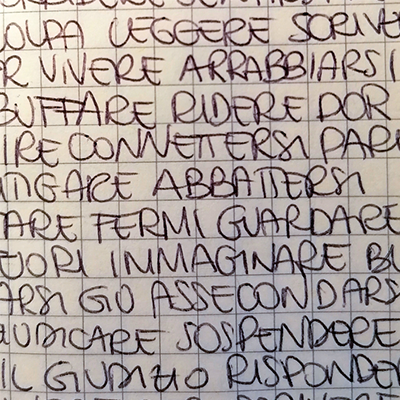 COLPA LEGGERE SCRIVE
R VIVERE ARRABBIARSI
BUFFARE RIDERE DOR
IRE CONNETTERSI PAR
ITIGARE ABBATTERSI
ARE FERMI GUARDARE
UORI IMMAGINARE BU
ARSI GIÙ ASSECONDARS
IUDICARE SOSPENDERE
IL GIUDIZIO RISPONDE